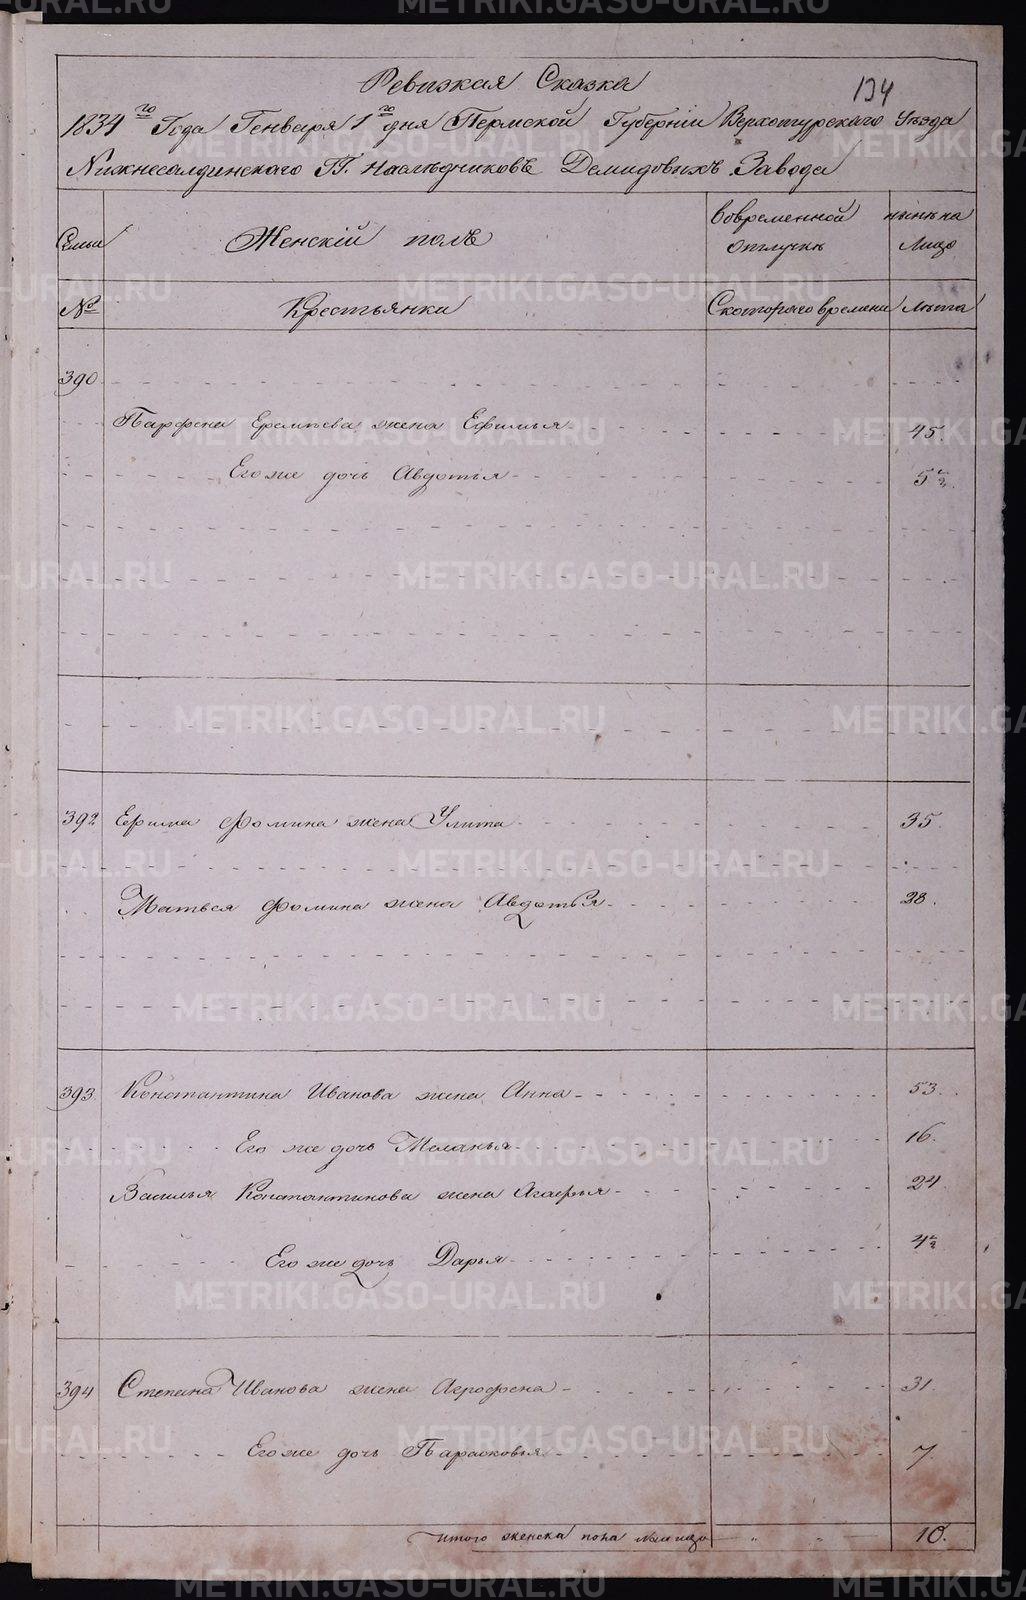 Ревизкая Сказка
134
1834го Года Генваря 1го дня Пермской Губернiи Верхотурскаго Уѣзда
Нижнесалдинскаго ГГ. Наслѣдниковъ Демидовыхъ Завода
Семьи Женскiй полъ вовременной отлучкѣ нынѣ на Лицо
№ Крестьянки Скоторого времени Лѣта
390
Парфена Еремѣева жена Ефимья 45.
Его же дочь Авдотья 5 1/2.
392 Ефима Фомина жена Улита 35.
Матвея Фомина жена Авдотья 28.
393. Константина Иванова жена Анна 53.
Его же дочь Меланья 16.
Василья Константинова жена Агафья 24
Его же дочь Дарья 4 1/2
394 Степана Иванова жена Агрофена 31
Его же дочь Парасковья 7.
Итого женска пола на лицо 10.
METRIKI.GASO-URAL.RU